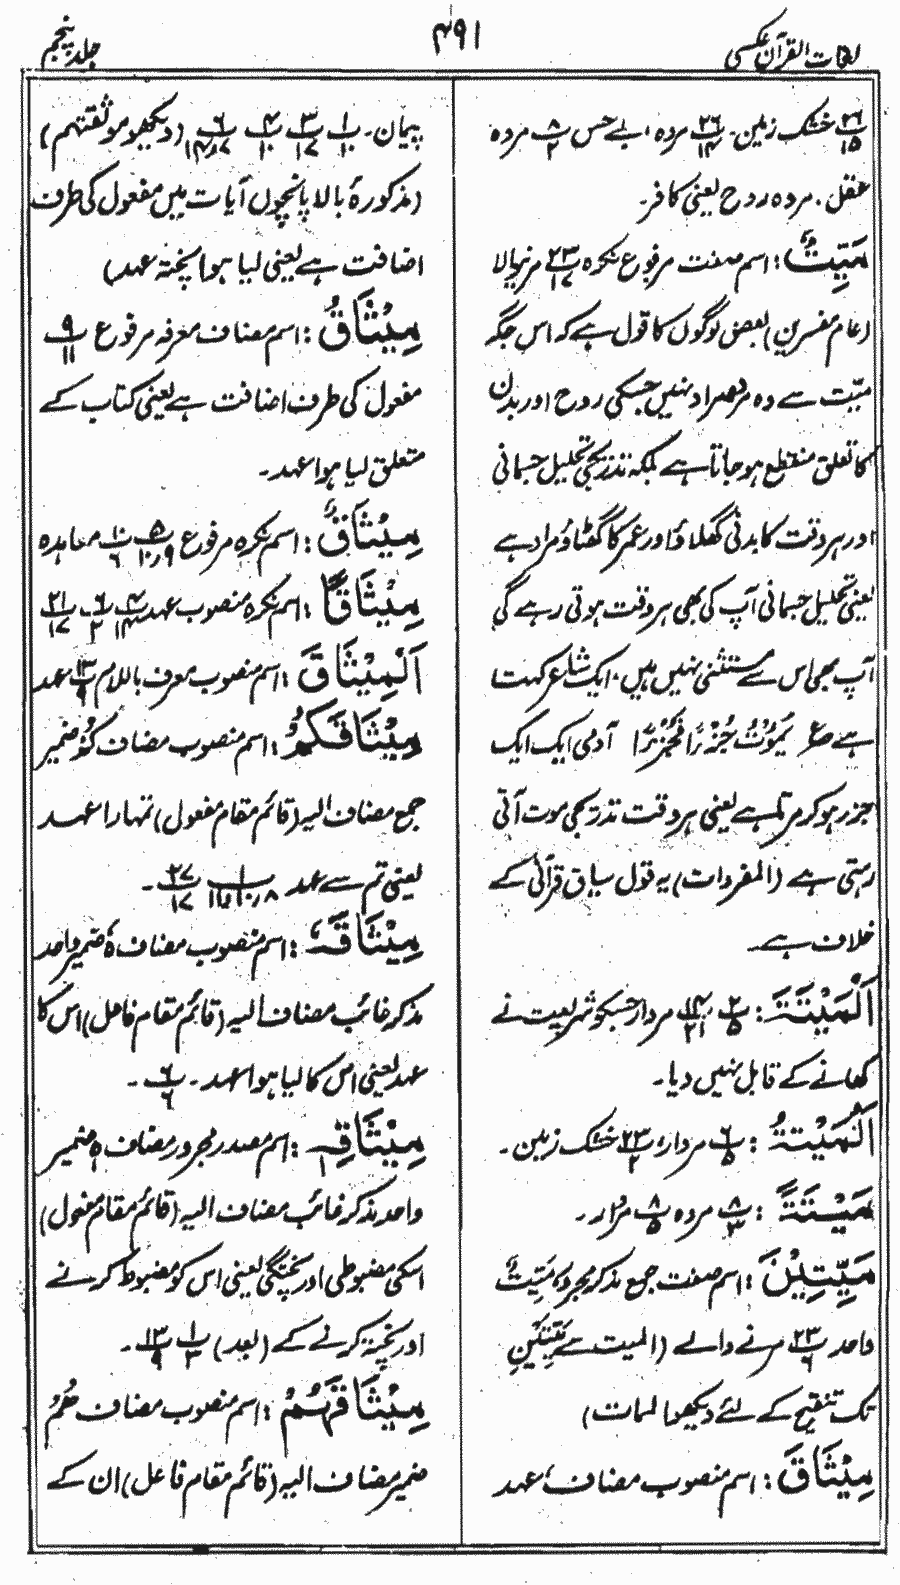 لغات القرآن عکسی
۴۹۱
جلد پنجم
۲۶/۱۵ خشک زمین۔ ۲۶/۱۴ مردہ، بے حس پ ۸/۲ مردہ
عقل۔ مردہ روح یعنی کافر۔
مَیِّتٌ: اسم صفت مرفوع نکرہ ۲۳/۱۷ مرنیوالا
(عام مفسرین) بعض لوگوں کا قول ہے کہ اس جگہ
میّت سے وہ مراد نہیں جسکی روح اور بدن
کا تعلق منقطع ہو جاتا ہے بلکہ تدریجی تحلیل جسمانی
اور ہر وقت کا بدنی گھلاؤ اور عمر کا گھٹاؤ مراد ہے
یعنی تحلیل جسمانی آپ کی بھی ہر وقت ہوتی رہے گی
آپ بھی اس سے مستثنیٰ نہیں ہیں، ایک شاعر کہتا
ہے ع یَمُوْتُ جُزْءًا فَجُزْءًا آدمی ایک ایک
جزر ہو کر مرتا ہے یعنی ہر وقت تدریجی موت آتی
رہتی ہے (المفردات) یہ قول سیاق قرآنی کے
خلاف ہے۔
اَلْمَیْتَۃَ: پ ۲/۵ ۱۴/۲۱ مردار جسکو شریعت نے
کھانے کے قابل نہیں دیا۔
اَلْمَیْتَۃُ: پ ۶/۵ مردار، ۲۳/۲ خشک زمین۔
مَیْتَۃً: پ ۸/۳ مردہ پ ۸/۵ مردار۔
مَیِّتِیْنَ: اسم صفت جمع مذکر مجرور، مَیِّتٌ
واحد ۲۳/۶ مرنے والے (المیت سے مَیِّتِیْنَ
تک تنقیح کے لئے دیکھو المات)
مِیْثَاقَ: اسم منصوب مضاف، عہد
پیمان۔ پ ۱/۱۰ پ ۳/۱۷ پ ۴/۱۰ پ ۶/۱۴،۷ (دیکھو موثقتہم)
(مذکورۂ بالا پانچوں آیات میں مفعول کی طرف
اضافت ہے یعنی لیا ہوا پختہ عہد)
مِیْثَاقُ: اسم مضاف معرفہ مرفوع پ ۹/۱۱
مفعول کی طرف اضافت ہے یعنی کتاب کے
متعلق لیا ہوا عہد۔
مِیْثَاقٌ: اسم نکرہ مرفوع پ ۵/۹،۱۰ پ ۱۰/۶ معاہدہ
مِیْثَاقًا: اسم نکرہ منصوب عہد پ ۴/۱۴ پ ۶/۲ ۲۱/۱۷
اَلْمِیْثَاقَ: اسم منصوب معرف باللام پ ۱۳/۹ عہد
مِیْثَاقَکُمْ: اسم منصوب مضاف کُمْ ضمیر
جمع مضاف الیہ (قائم مقام مفعول) تمہارا عہد
یعنی تم سے عہد پ ۱/۸،۱۰ یا ۱۱ ۲۷/۱۷۔
مِیْثَاقَہٗ: اسم منصوب مضاف ہٗ ضمیر واحد
مذکر غائب مضاف الیہ (قائم مقام فاعل) اس کا
عہد یعنی اس کا لیا ہوا عہد۔ پ ۶/۶۔
مِیْثَاقِہٖ: اسم مصدر مجرور مضاف ہٖ ضمیر
واحد مذکر غائب مضاف الیہ (قائم مقام مفعول)
اسکی مضبوطی اور پختگی یعنی اس کو مضبوط کرنے
اور پختہ کرنے کے (بعد) پ ۱/۳ ۱۳/۹۔
مِیْثَاقَہُمْ: اسم منصوب مضاف ھُمْ
ضمیر مضاف الیہ (قائم مقام فاعل) ان کے